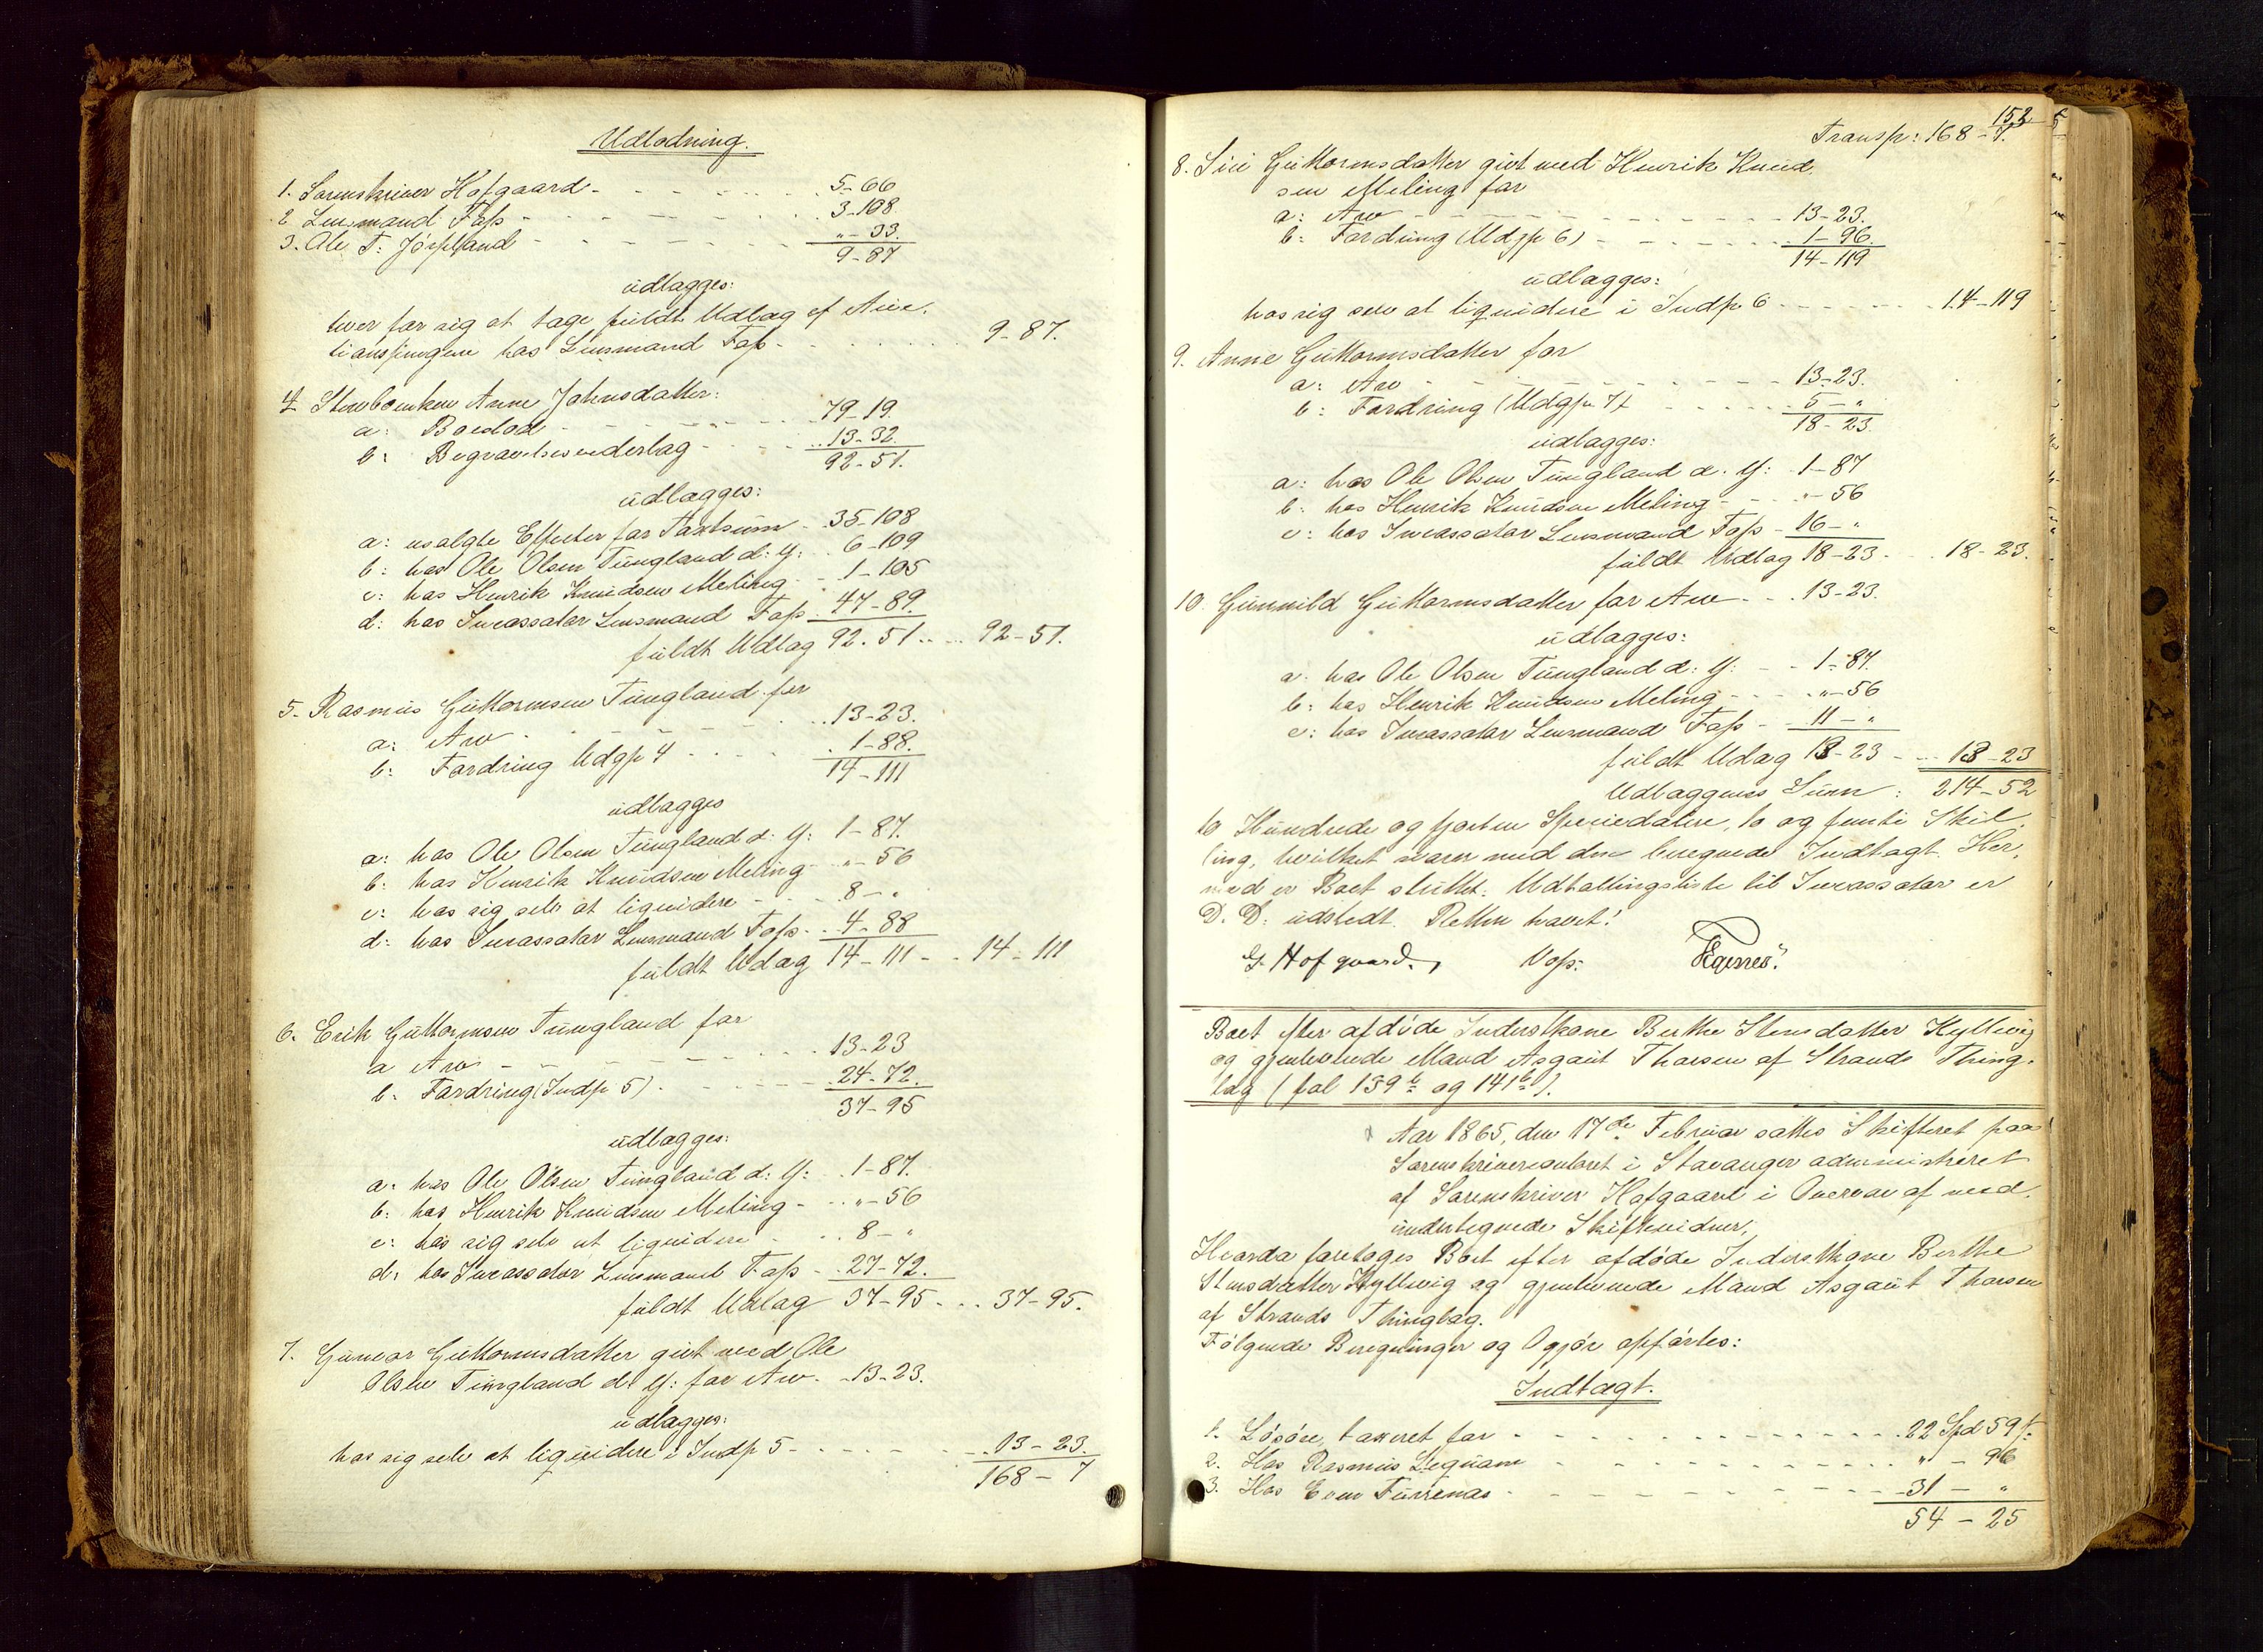 Udlodning.
1. Sorenskriver Hofgaard - 5-66
2 Lensmand Foss - 3-108
3. Ole T. Jøssland - "-33.
9-87
udlægges:
hver for sig at tage fuldt Udlæg af Auc-
tionspengene hos Lensmand Foss - 9-87.
4 Stervboenken Anne Johnsdatter:
a: Boeslod - 79-19.
b: Begravelsesvederlag - 13-32.
92-51.
udlægges:
a: usolgte Effecter for Taxtsum - 35-108
b: hos Ole Olsen Tungland d: y: 6-109
c: hos Henrik Knudsen Meling - 1-105
d: hos Incassator Lensmand Foss - 47-89.
fuldt Udlæg 92-51 - 92-51.
5. Rasmus Guttormsen Tungland for
a: Arv - 13-23.
b: Fordring Udgp 4 - 1-88.
14-111
udlægges
a: hos Ole Olsen Tungland d: y: 1-87.
b: hos Henrik Knudsen Meling - "-56
c: hos sig selv at liquidere - 8-"
d: hos Incassator Lensmand Foss - 4-88
fuldt Udlæg 14-111 - 14-111
6. Erik Guttormsen Tungland for
a Arv - 13-23
b: Fordring (Indp 5) - 24-72.
37-95
udlægges:
a: hos Ole Olsen Tungland d: y: 1-87.
b: hos Henrik Knudsen Meling - "-56
c: hos sig selv at liquidere - 8-"
d: hos Incassator Lensmand Foss - 27-72.
fuldt Udlæg 37-95 - 37-95.
7. Gunvor Guttormsdatter givt med Ole
Olsen Tungland d: y: for Arv - 13-23.
udlægges:
hos sig selv at liquidere i Indp 5 - 13-23.
168-7
152
Transp: 168-7.
8. Siri Guttormsdatter givt med Henrik Knud-
sen Meling for
a: Arv - 13-23.
b: Fordring (Udgp 6) - 1-96.
14-119
udlægges:
hos sig selv at liquidere i Indp 6 - 14-119
9. Anne Guttormsdatter for
a: Arv - 13-23.
b: Fordring (Udgp 7) - 5-"
18-23.
udlægges:
a: hos Ole Olsen Tungland d. y: 1-87
b: hos Henrik Knudsen Meling - "-56
c: hos Incassator Lensmand Foss - 16-"
fuldt Udlæg 18-23 - 18-23.
10. Gunnild Guttormsdatter for Arv - 13-23.
udlægges:
a: hos Ole Olsen Tungland d: y: - 1-87.
b: hos Henrik Knudsen Meling - "-56
c: hos Incassator Lensmand Foss - 11-"
fuldt Udlæg 13-23 - 13-23
Udlæggenes Sum: 214-52
to Hundrede og fjorten Speciedalere, to og femti Skil-
ling, hvilket svarer med den beregnede Indtægt. Her-
med er Boet sluttet. Udtællingsliste til Incassator er
D. D: udstedt. Retten hævet!
G. Hofgaard. Voss: Egenes.
Boet efter afdøde Inderstkone Berthe Stensdatter Hyllevig
og gjenlevende Mand Asgaut Thorsen af Strands Thing-
lag (fol 139b og 141b).
Aar 1865, den 17de Februar sattes Skifteret paa
Sorenskrivercontoret i Stavanger administreret
af Sorenskriver Hofgaard i Overvær af ved-
undertegnede Skiftevidner.
Hvorda foretoges Boet efter afdøde Inderstkone Berthe
Stensdatter Hyllevig og gjenlevende Mand Asgaut Thorsen
af Strands Thinglag.
Følgende Beregninger og Opgjør opførtes:
Indtægt.
1. Løsøre, taxeret for - 22 Spd 59 s.
2. Hos Rasmus - " - 96
3. Hos Even Furrenas - 31 - "
54 - 25